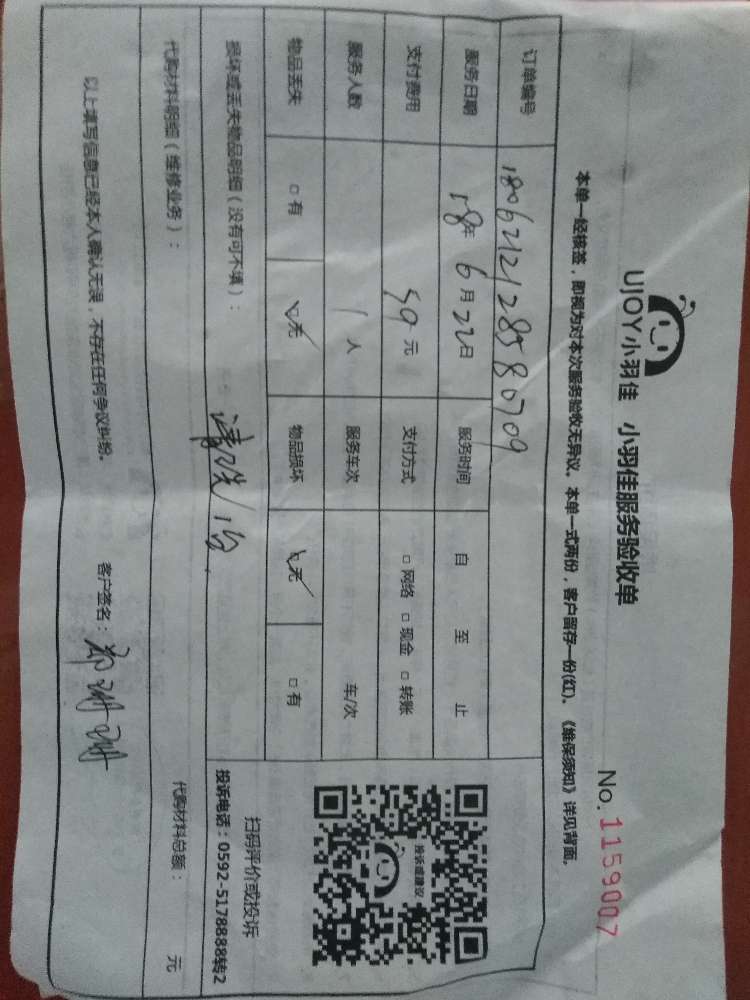 UJOY小羽佳 小羽佳服务验收单
No. 1159007
本单一经核签，即视为对本次服务验收无异议。本单一式两份，客户留存一份(红)。《维保须知》详见背面。
订单编号 180621212858 0709
服务日期 18年 6月 22日 服务时间 自 至 止
支付费用 59元 支付方式 □网络 □现金 □转账
服务人数 1人 服务车次 车/次
物品丢失 □有 □无 物品损坏 □无 □有
损坏或丢失物品明细（没有可不填）：
清洗1台
投诉或建议
扫码评价或投诉
投诉电话：0592-5178888转2
代购材料明细（维修业务）：
代购材料总额： 元
以上填写信息已经本人确认无误，不存在任何争议纠纷。
客户签名：